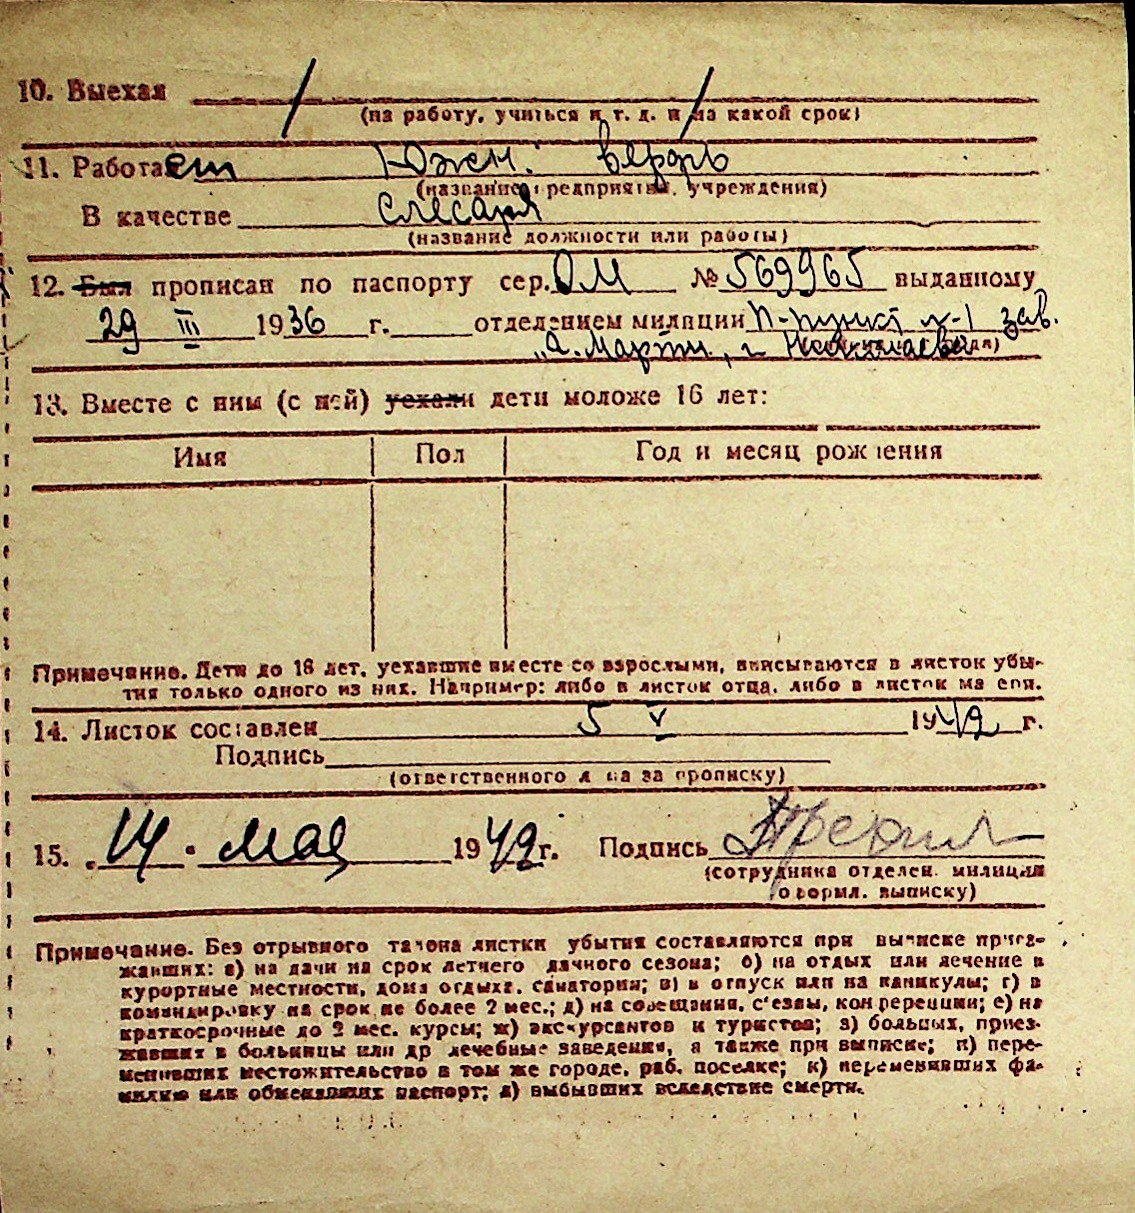 10. Выехал
(на работу, учиться и т. д. и на какой срок)
11. Работает Южн. верфь
(название предприятия, учреждения)
В качестве слесаря
(название должности или работы)
12. Был прописан по паспорту сер. ОМ № 569965 выданному
29 III 1936 г. отделением милиции п-пункт н-1 зав.
„А. Марти", г. Николаева
13. Вместе с ним (с ней) уехали дети моложе 16 лет:
Имя Пол Год и месяц рождения
Примечание. Дети до 16 лет, уехавшие вместе со взрослыми, вписываются в листок убы-
тия только одного из них. Например: либо в листок отца, либо в листок матери.
14. Листок составлен 5 V 1942 г.
Подпись
(ответственного лица за прописку)
15. „14" мая 1942 г. Подпись
(сотрудника отделен. милиции
оформл. выписку)
Примечание. Без отрывного талона листки убытия составляются при выписке приез-
жавших: а) на дачи на срок летнего дачного сезона; б) на отдых или лечение в
курортные местности, дома отдыха, санатории; в) в отпуск или на каникулы; г) в
командировку на срок не более 2 мес.; д) на совещания, с'езды, конференции; е) на
краткосрочные до 2 мес. курсы; ж) экскурсантов и туристов; з) больных, приез-
жавших в больницы или др лечебные заведения, а также при выписке; и) пере-
менивших местожительство в том же городе, раб. поселке; к) переменивших фа-
милию или обменявших паспорт; л) выбывших вследствие смерти.